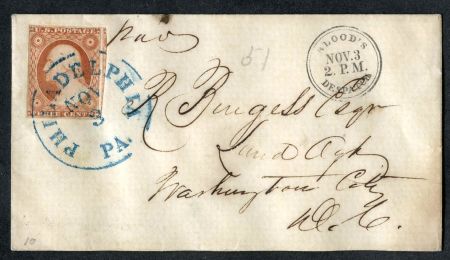 U.S. POSTAGE
THREE CENTS
PHILADELPHIA
NOV
3
PA.
51
BLOOD'S
NOV. 3
2. P.M.
DESPATCH
R Burgess Esqr
Land Agt
Washington City
D.C.
10